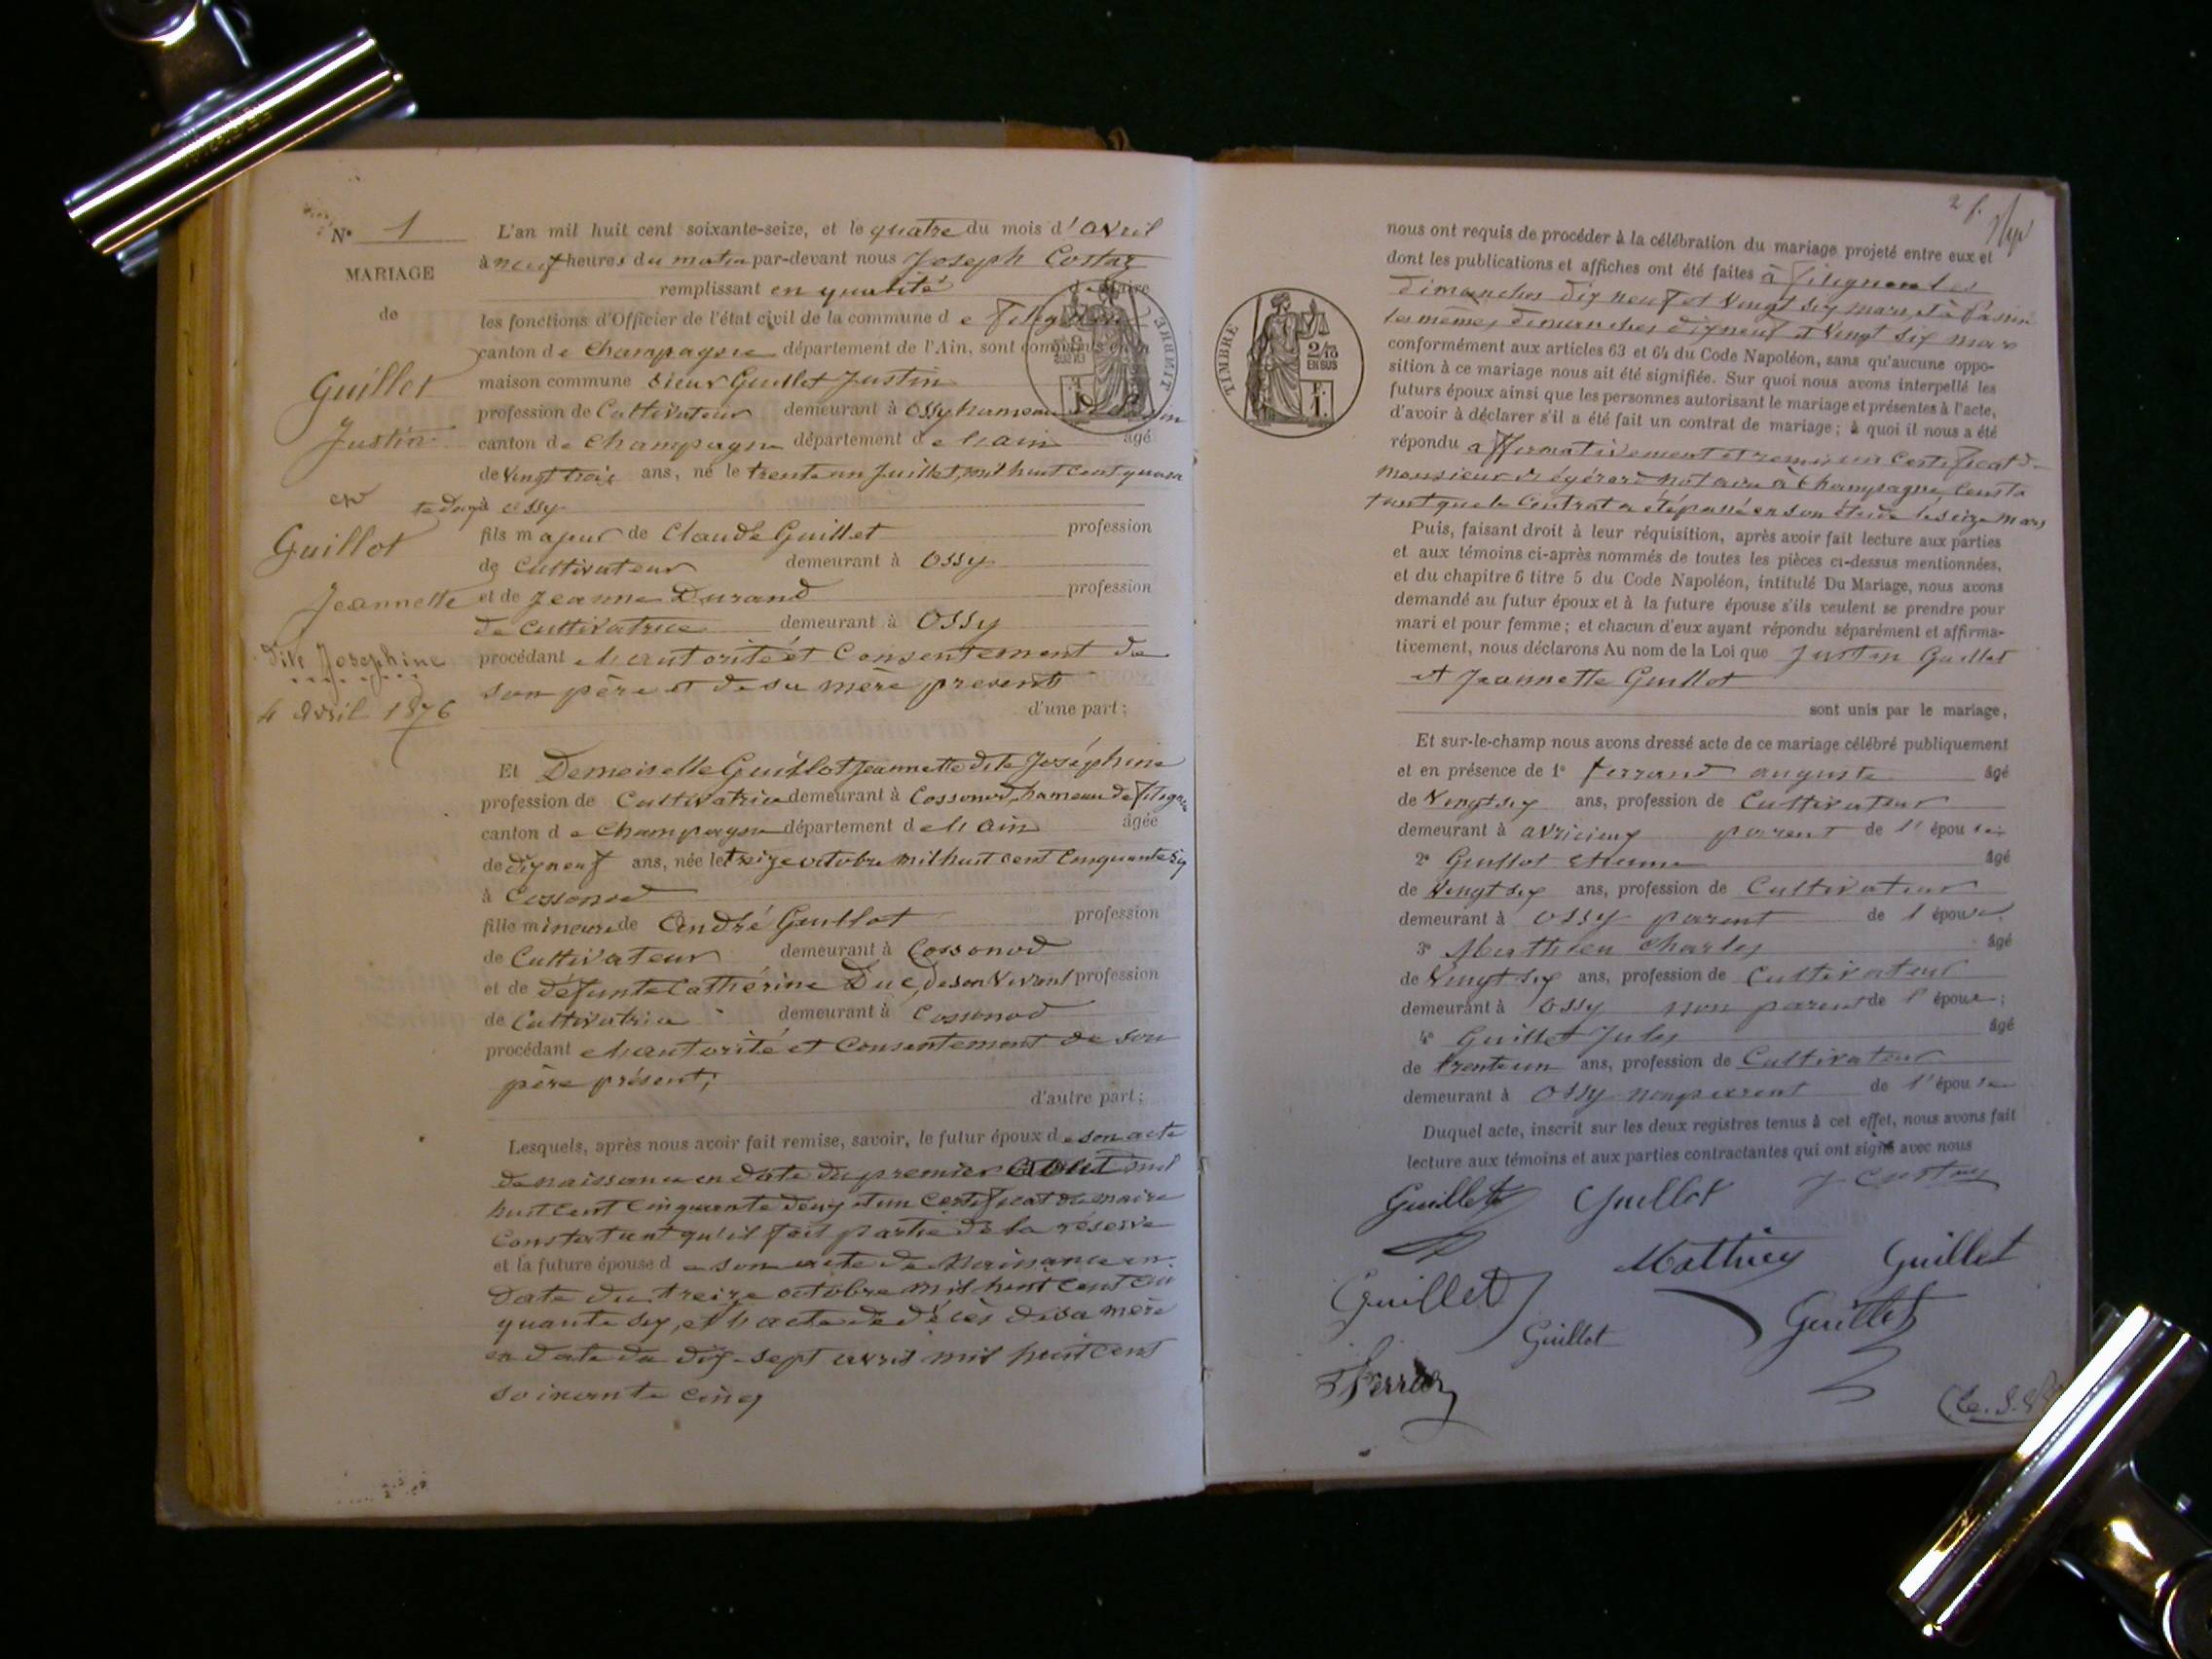 N° 1
MARIAGE
de
Guillet
Justin
et
Guillot
Jeannette
dite Josephine
4 avril 1876
L'an mil huit cent soixante-seize, et le quatre du mois d'avril
à neuf heures du matin par-devant nous Joseph Costaz
remplissant en qualité de Maire
les fonctions d'Officier de l'état civil de la commune de
canton de Champagne département de l'Ain, sont comparus en la
maison commune Sieur Guillet Justin
profession de Cultivateur demeurant à Ossy hameau
canton de Champagne département de l'ain âgé
de Vingt trois ans, né le trente un Juillet, mil huit cent quara
à ossy
fils majeur de Claude Guillet profession
de Cultivateur demeurant à Ossy
et de Jeanne Durand profession
de cultivatrice demeurant à Ossy
procédant de l'autorité et Consentement de
son père et de sa mère present
d'une part;
Et Demoiselle Guillot Jeannette dite Joséphine
profession de Cultivatrice demeurant à Cossonod, hameau de
canton de Champagne département de l'ain âgée
de dix neuf ans, née le treize octobre mil huit cent Cinquante six
à Cossonod
fille mineure de André Guillot profession
de Cultivateur demeurant à Cossonod
et de défunte Cathérine Duc, de son Vivant profession
de Cultivatrice demeurant à Cossonod
procédant de l'autorité et Consentement de son
père présent;
d'autre part;
Lesquels, après nous avoir fait remise, savoir, le futur époux de son acte
de naissance en date du premier mil
huit cent Cinquante deux et un Certificat du maire
Constatant qu'il fait partie de la réserve
et la future épouse de son acte de Naissance en
date du treize octobre mil huit cent cin
quante six, et l'acte de décès de sa mère
en date du dix-sept avril mil huit cent
soixante cinq
2 f.
TIMBRE
2/10
EN SUS
F.
1.
nous ont requis de procéder à la célébration du mariage projeté entre eux et
dont les publications et affiches ont été faites à les
dimanches dix neuf et Vingt six mars, et à
les mêmes dimanches dix neuf et Vingt six mars
conformément aux articles 63 et 64 du Code Napoléon, sans qu'aucune oppo-
sition à ce mariage nous ait été signifiée. Sur quoi nous avons interpellé les
futurs époux ainsi que les personnes autorisant le mariage et présentes à l'acte,
d'avoir à déclarer s'il a été fait un contrat de mariage; à quoi il nous a été
répondu affirmativement et remis un Certificat de
Monsieur notaire à Champagne, Consta
tant que le Contrat a été passé en son étude le seize mars
Puis, faisant droit à leur réquisition, après avoir fait lecture aux parties
et aux témoins ci-après nommés de toutes les pièces ci-dessus mentionnées,
et du chapitre 6 titre 5 du Code Napoléon, intitulé Du Mariage, nous avons
demandé au futur époux et à la future épouse s'ils veulent se prendre pour
mari et pour femme; et chacun d'eux ayant répondu séparément et affirma-
tivement, nous déclarons Au nom de la Loi que Justin Guillet
et Jeannette Guillot
sont unis par le mariage,
Et sur-le-champ nous avons dressé acte de ce mariage célébré publiquement
et en présence de 1° ferrand auguste âgé
de Vingt six ans, profession de Cultivateur
demeurant à parent de l'épouse
2° Guillot Etienne âgé
de Vingt six ans, profession de Cultivateur
demeurant à Ossy parent de l'épouse
3° Mathieu Charles âgé
de Vingt six ans, profession de Cultivateur
demeurant à Ossy non parent de l'épouse;
4° Guillet Jules âgé
de trente un ans, profession de Cultivateur
demeurant à Ossy non parent de l'épouse
Duquel acte, inscrit sur les deux registres tenus à cet effet, nous avons fait
lecture aux témoins et aux parties contractantes qui ont signé avec nous
Guillet Guillot J Costaz
Mathieu Guillet
Guillet
Guillot Guillet